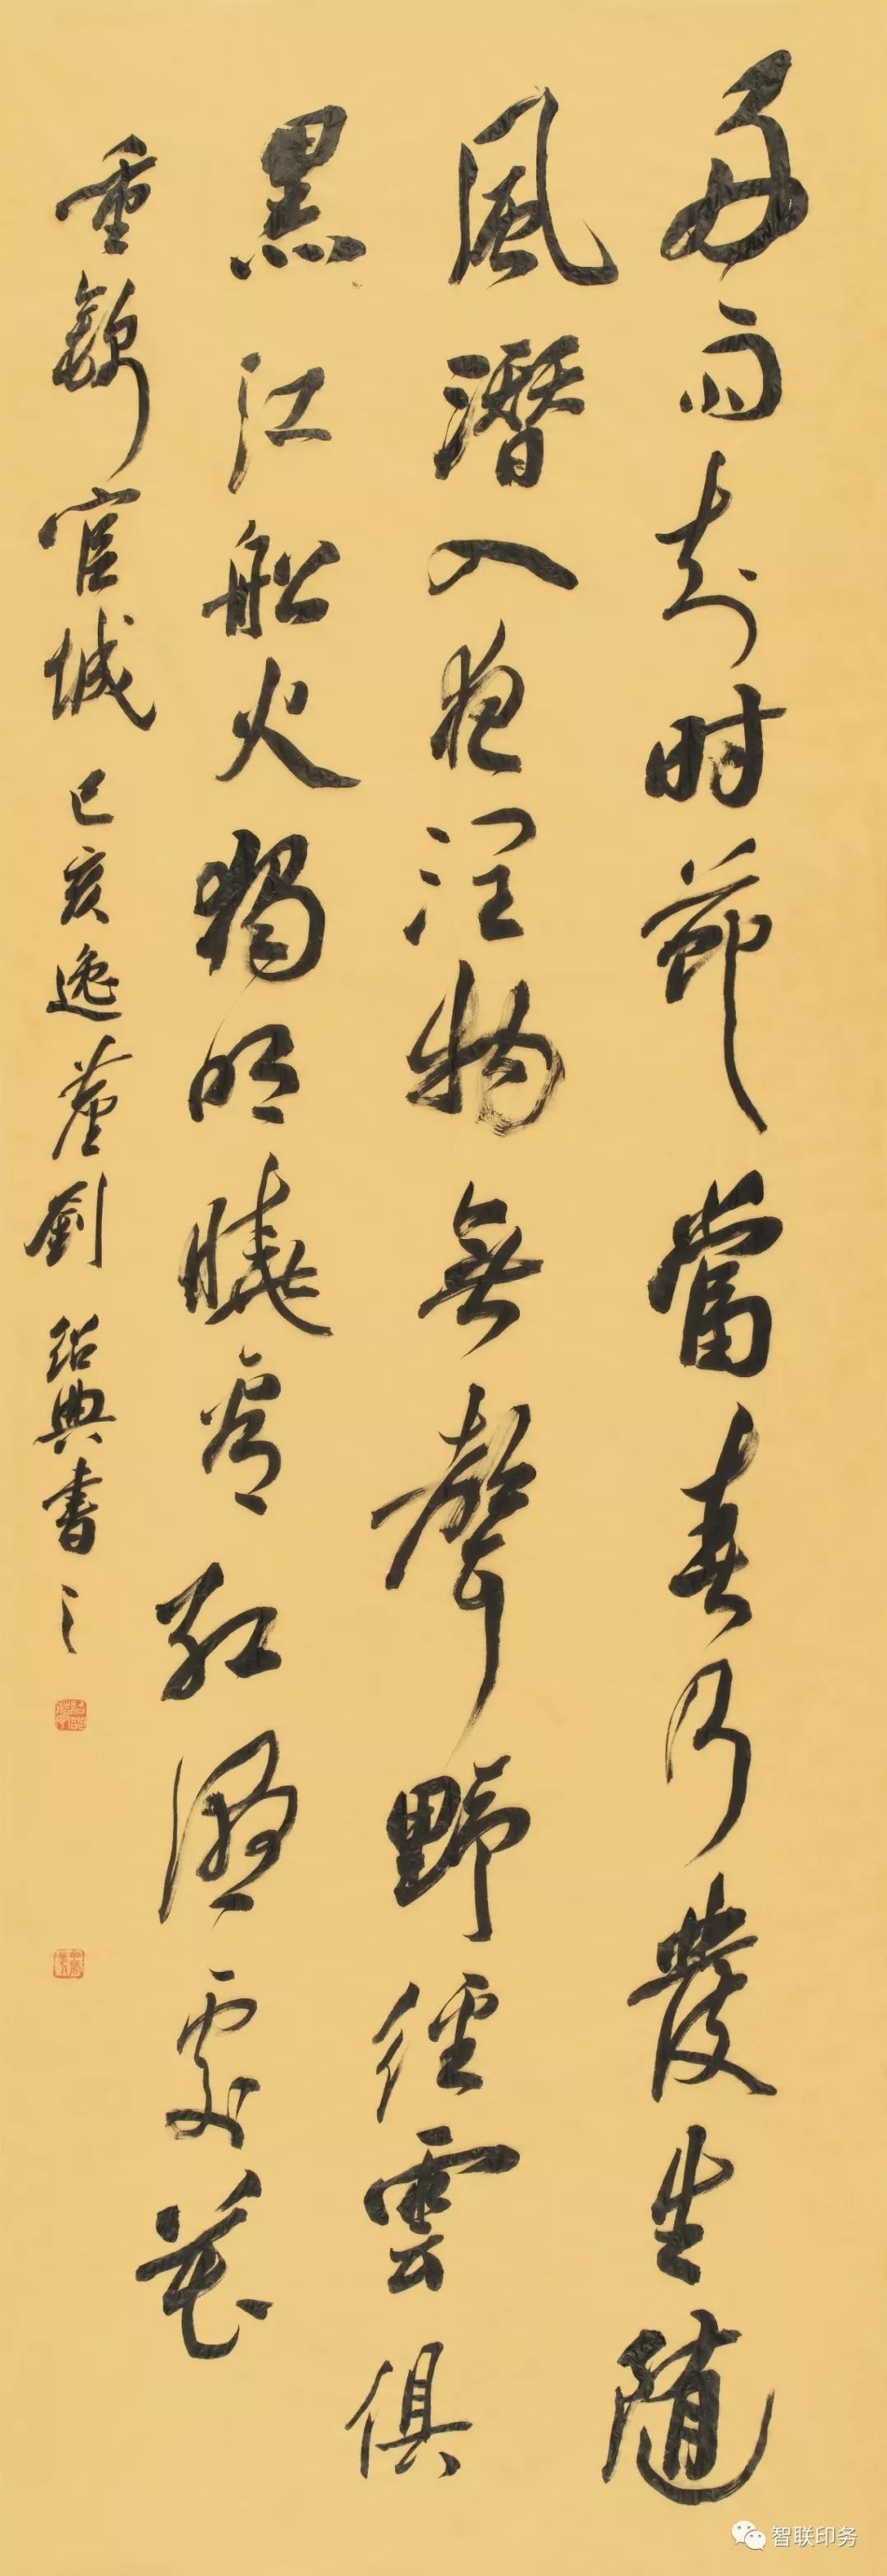 好雨知时節當春乃發生隨
風潛入夜润物無聲野徑雲俱
黑江船火獨明曉看紅濕處花
重錦官城 己亥逸劉紹典書之
智联印务